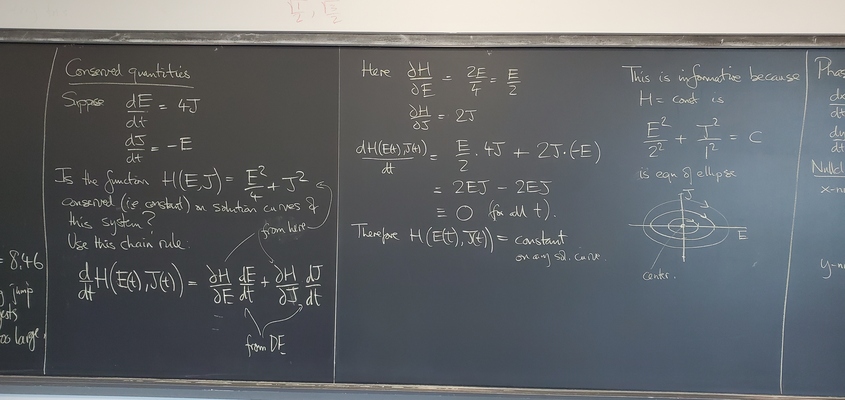 Conserved quantities
Sippose dE/dt = 4J
dJ/dt = -E
Is the function H(E,J) = E²/4 + J²
conserved (ie constant) on solution curves of
this system?
Use this chain rule:
from here
d/dt H(E(t),J(t)) = ∂H/∂E dE/dt + ∂H/∂J dJ/dt
from DE
= 8.46
jump
too large
Here ∂H/∂E = 2E/4 = E/2
∂H/∂J = 2J
dH(E(t),J(t))/dt = E/2 · 4J + 2J·(-E)
= 2EJ - 2EJ
≡ 0 (for all t).
Therefore H(E(t),J(t)) = constant
on any sol. curve.
This is informative because
H = const is
E²/2² + J²/1² = C
is eqn of ellipse
J
E
center.
Phas
dx
dt
dy
dt
Nullcl
x-n
y-n